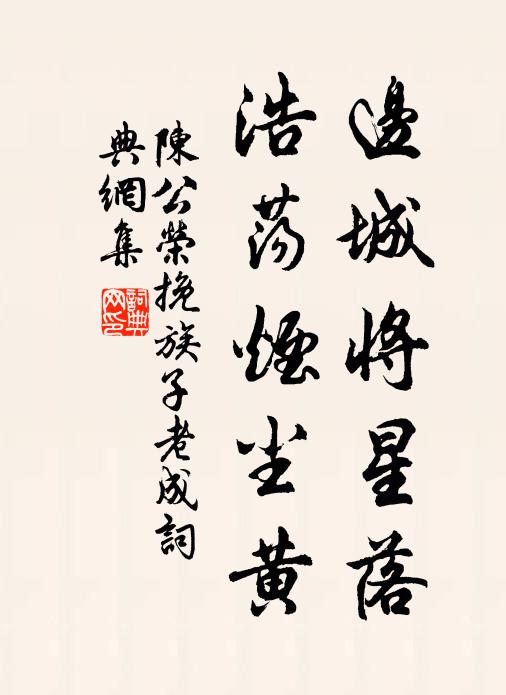 邊城將星落
浩蕩煙尘黄
陳公榮挽族子老成詞
典網集
詞典網印